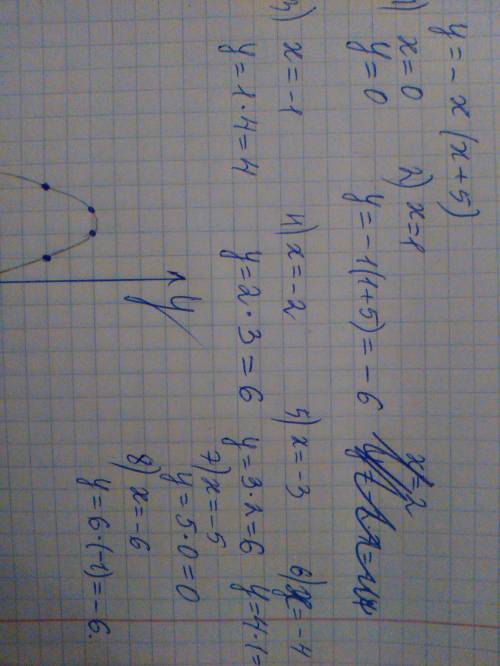 y = - x (x + 5)
1) x = 0
y = 0
2) x = 1
y = -1(1+5) = -6
x = 2
3) x = -1
y = 1 · 4 = 4
4) x = -2
y = 2 · 3 = 6
5) x = -3
y = 3 · 2 = 6
6) x = -4
y = 4 · 1 =
7) x = -5
y = 5 · 0 = 0
8) x = -6
y = 6 · (-1) = -6.
y